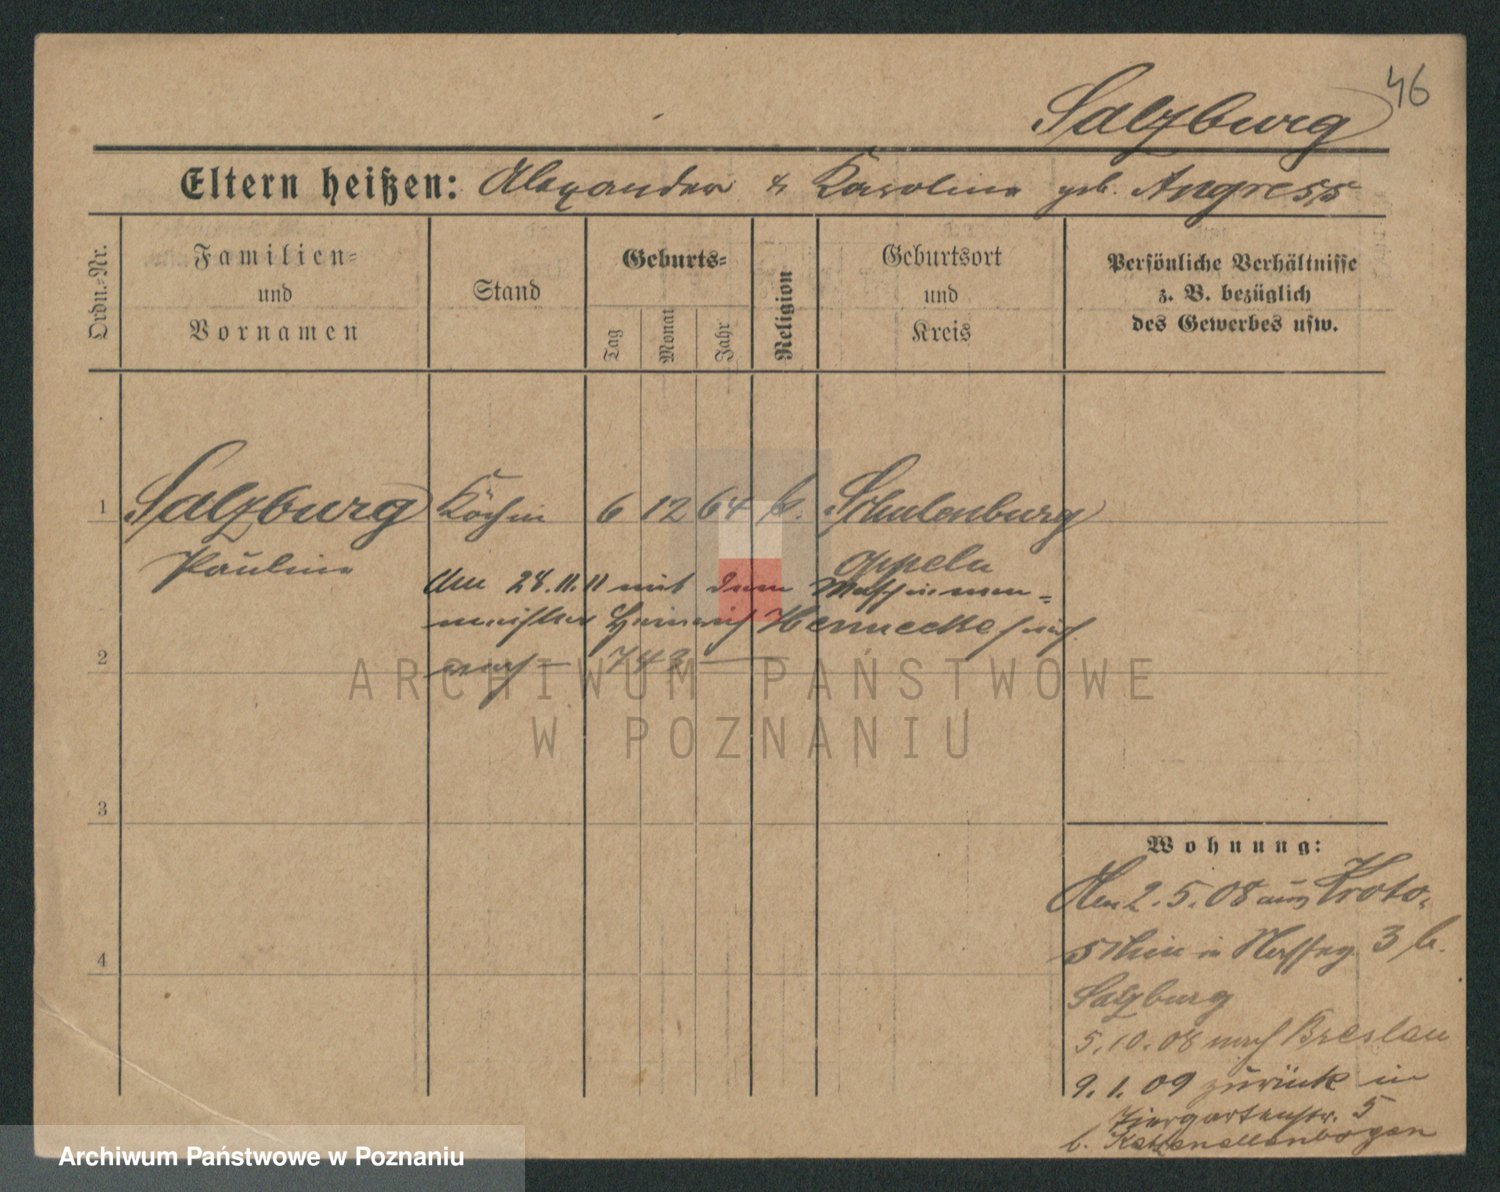 46
Salzburg
Eltern heißen: Alexander & Karoline geb. Angress
Ordn.-Nr.
Familien-
und
Vornamen
Stand
Geburts-
Tag
Monat
Jahr
Religion
Geburtsort
und
Kreis
Persönliche Verhältnisse
z. B. bezüglich
des Gewerbes usw.
1 Salzburg Köchin 6 12 64 Schulenburg
Pauline Oppeln
den 28.11.11 mit dem Maschinen=
meister Heinrich Hennecke
nach — 743 —
2
3
4
Wohnung:
Den 2.5.08 aus Kroto-
schin in 3 b.
Salzburg
5.10.08 nach Breslau
9.1.09 zurück in
Tiergartenstr. 5
b. Katzenellenbogen
ARCHIWUM PAŃSTWOWE
W POZNANIU
Archiwum Państwowe w Poznaniu